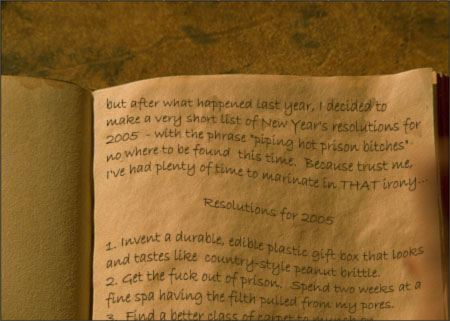 but after what happened last year, I decided to
make a very short list of New Year's resolutions for
2005 - with the phrase "piping hot prison bitches"
no where to be found this time. Because trust me,
I've had plenty of time to marinate in THAT irony...
Resolutions for 2005
1. Invent a durable, edible plastic gift box that looks
and tastes like country-style peanut brittle.
2. Get the fuck out of prison. Spend two weeks at a
fine spa having the filth pulled from my pores.
3. Find a better class of carpet to munch on